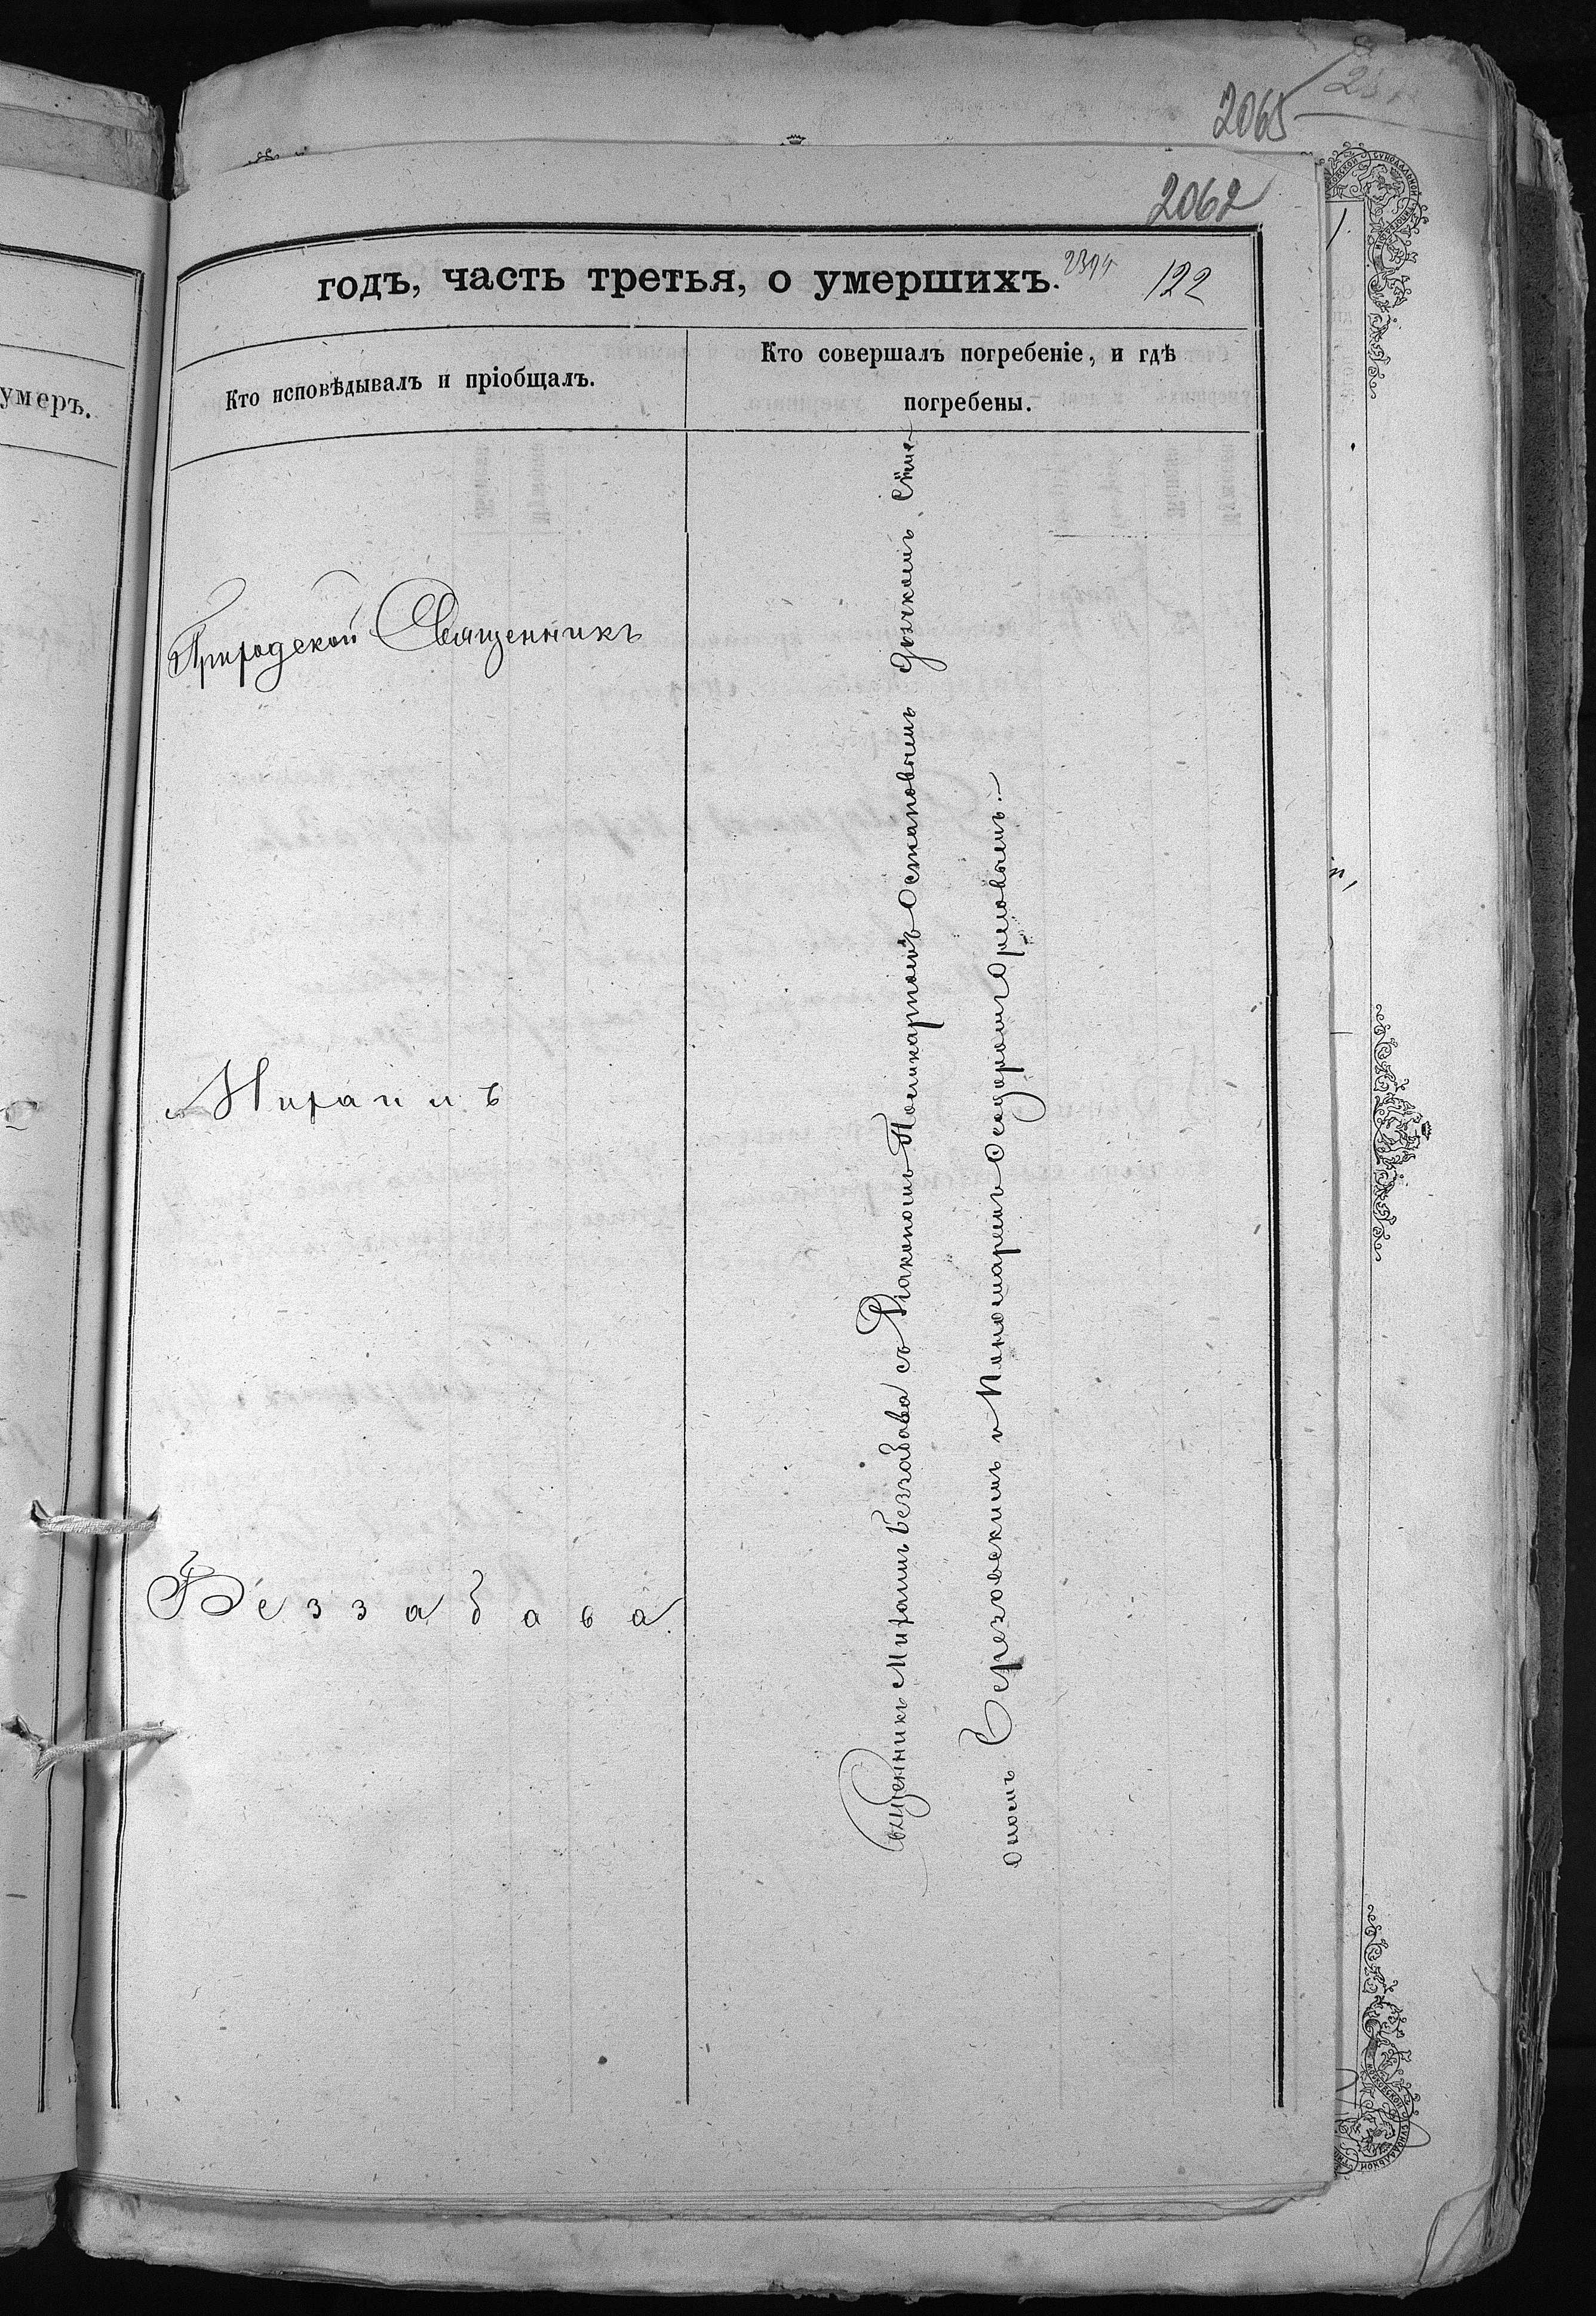 2065
2062
годъ, часть третья, о умершихъ.
122
умеръ.
Кто исповѣдывалъ и пріобщалъ.
Кто совершалъ погребеніе, и гдѣ
погребены.
Священникъ
Михаилъ
Беззабава
Священникъ Михаилъ Беззабава съ Діакономъ Поликарпомъ Остаповымъ дьячкомъ Сте-
Березовскимъ и Пономаремъ Ѳеодоромъ